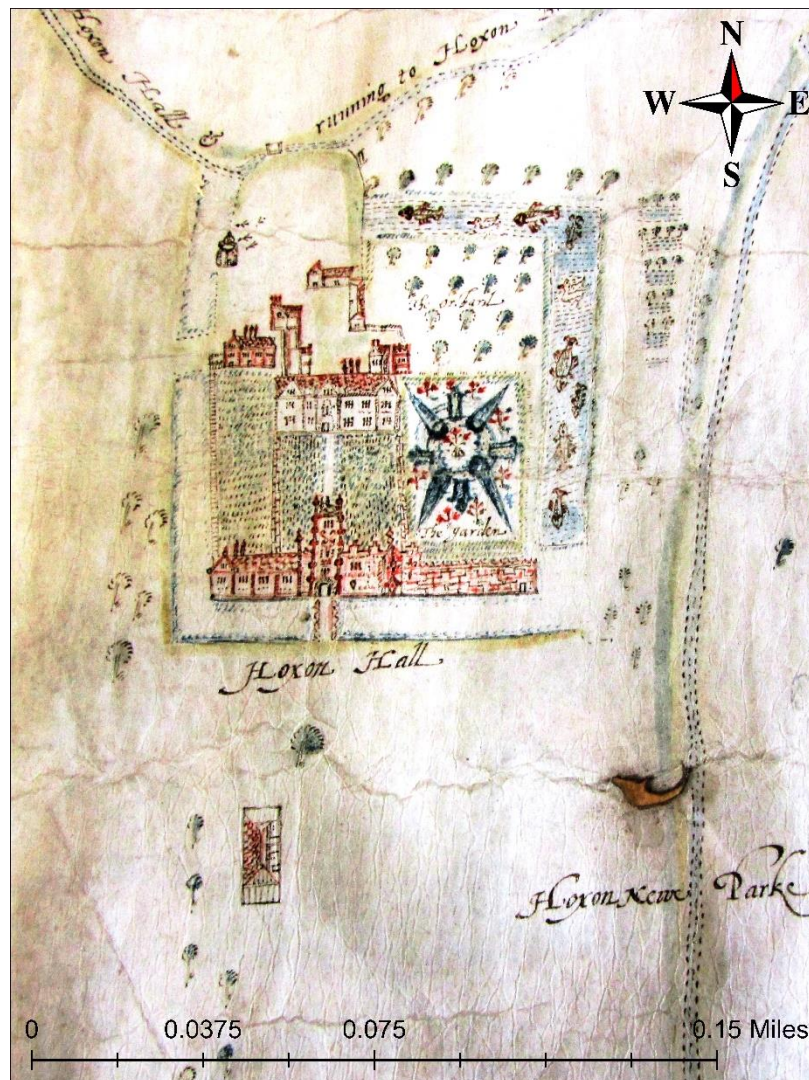 Hoxon Hall &
running to Hoxon
N
W E
S
The orchard
The garden
Hoxon Hall
Hoxon Newe Parke
0 0.0375 0.075 0.15 Miles